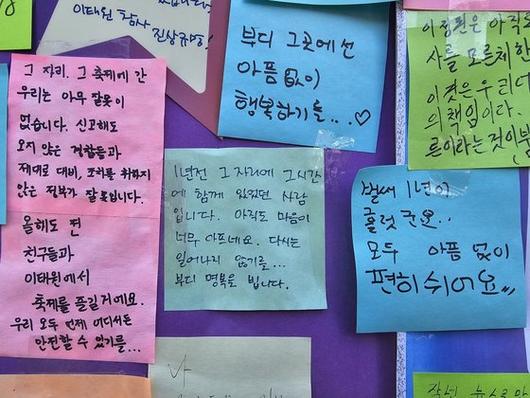 이태원 참사 진상규명!
부디 그곳에선
아픔 없이
행복하기를...♡
이 정권은 아직
사를 모른체 한
이것은 우리
의 책임이라.
른이라는 것이
그 자리. 그 축제에 간
우리는 아무 잘못이
없습니다. 신고해도
오지 않은 경찰들과
제대로 대비, 조치를 취하지
않은 정부가 잘못입니다.
올해도 전
친구들과
이태원에서
축제를 즐길 거예요.
우리 모두 언제 어디서든
안전할 수 있기를...
1년전 그 자리에 그시간
에 함께 있었던 사람
입니다. 아직도 마음이
너무 아프네요. 다시는
일어나지 않기를...
부디 명복을 빕니다.
벌써 1년이
흘렀군요..
모두 아픔 없이
편히 쉬어요..
나